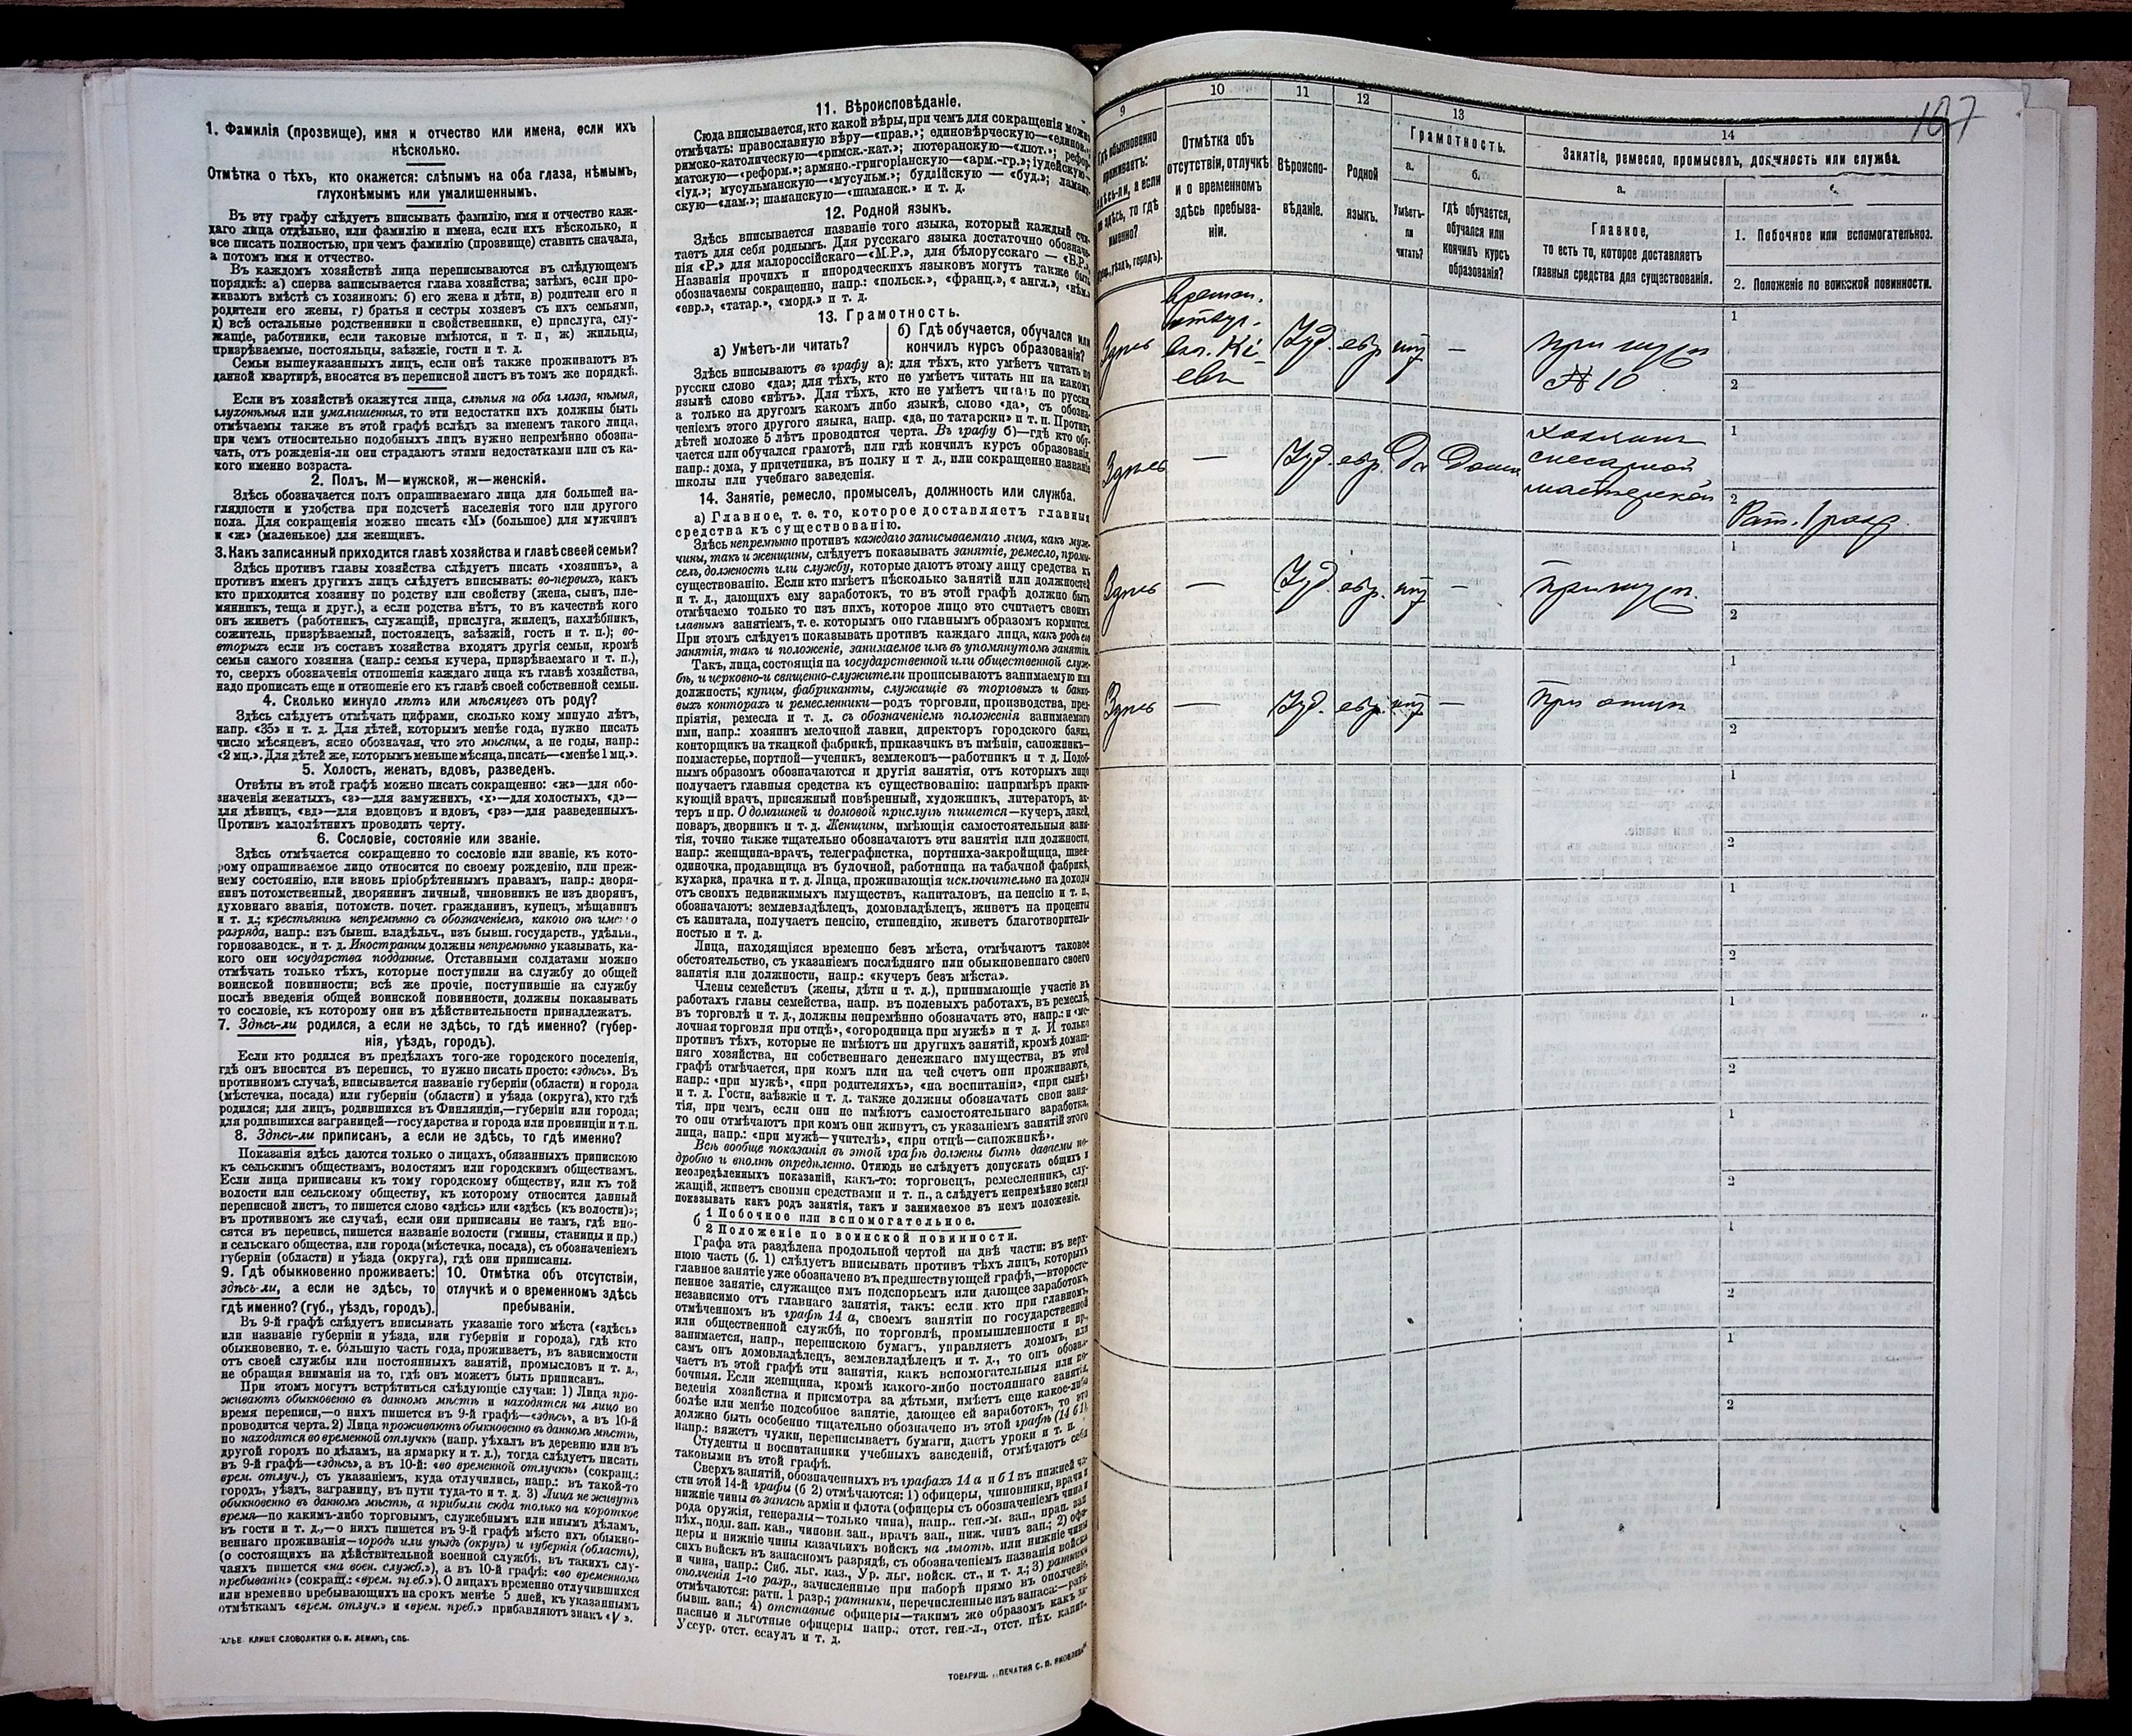 1. Фамилія (прозвище), имя и отчество или имена, если ихъ
нѣсколько.
Отмѣтка о тѣхъ, кто окажется: слѣпымъ на оба глаза, нѣмымъ,
глухонѣмымъ или умалишеннымъ.
Въ эту графу слѣдуетъ вписывать фамилію, имя и отчество каж-
даго лица отдѣльно, или фамилію и имена, если ихъ нѣсколько, и
все писать полностью, при чемъ фамилію (прозвище) ставить сначала,
а потомъ имя и отчество.
Въ каждомъ хозяйствѣ лица переписываются въ слѣдующемъ
порядкѣ: а) сперва записывается глава хозяйства; затѣмъ, если про-
живаютъ вмѣстѣ съ хозяиномъ: б) его жена и дѣти, в) родители его и
родители его жены, г) братья и сестры хозяевъ съ ихъ семьями,
д) всѣ остальные родственники и свойственники, е) прислуга, слу-
жащіе, работники, если таковые имѣются, и т. п, ж) жильцы,
призрѣваемые, постояльцы, заѣзжіе, гости и т. д.
Семьи вышеуказанныхъ лицъ, если онѣ также проживаютъ въ
данной квартирѣ, вносятся въ переписной листъ въ томъ же порядкѣ.
Если въ хозяйствѣ окажутся лица, слѣпыя на оба глаза, нѣмыя,
глухонѣмыя или умалишенныя, то эти недостатки ихъ должны быть
отмѣчаемы также въ этой графѣ вслѣдъ за именемъ такого лица,
при чемъ относительно подобныхъ лицъ нужно непремѣнно обозна-
чать, отъ рожденія-ли они страдаютъ этими недостатками или съ ка-
кого именно возраста.
2. Полъ. М—мужской, ж—женскій.
Здѣсь обозначается полъ опрашиваемаго лица для большей на-
глядности и удобства при подсчетѣ населенія того или другого
пола. Для сокращенія можно писать «М» (большое) для мужчинъ
и «ж» (маленькое) для женщинъ.
3. Какъ записанный приходится главѣ хозяйства и главѣ своей семьи?
Здѣсь противъ главы хозяйства слѣдуетъ писать «хозяинъ», а
противъ именъ другихъ лицъ слѣдуетъ вписывать: во-первыхъ, какъ
кто приходится хозяину по родству или свойству (жена, сынъ, пле-
мянникъ, теща и друг.), а если родства нѣтъ, то въ качествѣ кого
онъ живетъ (работникъ, служащій, прислуга, жилецъ, нахлѣбникъ,
сожитель, призрѣваемый, постоялецъ, заѣзжій, гость и т. п.); во-
вторыхъ если въ составъ хозяйства входятъ другія семьи, кромѣ
семьи самого хозяина (напр.: семья кучера, призрѣваемаго и т. п.),
то, сверхъ обозначенія отношенія каждаго лица къ главѣ хозяйства,
надо прописать еще и отношеніе его къ главѣ своей собственной семьи.
4. Сколько минуло лѣтъ или мѣсяцевъ отъ роду?
Здѣсь слѣдуетъ отмѣчать цифрами, сколько кому минуло лѣтъ,
напр. «35» и т. д. Для дѣтей, которымъ менѣе года, нужно писать
число мѣсяцевъ, ясно обозначая, что это мѣсяцы, а не годы, напр.:
«2 мц.». Для дѣтей же, которымъ меньше мѣсяца, писать—«менѣе 1 мц.».
5. Холостъ, женатъ, вдовъ, разведенъ.
Отвѣты въ этой графѣ можно писать сокращенно: «ж»—для обо-
значенія женатыхъ, «з»—для замужнихъ, «х»—для холостыхъ, «д»—
для дѣвицъ, «вд»—для вдовцовъ и вдовъ, «рз»—для разведенныхъ.
Противъ малолѣтнихъ проводить черту.
6. Сословіе, состояніе или званіе.
Здѣсь отмѣчается сокращенно то сословіе или званіе, къ кото-
рому опрашиваемое лицо относится по своему рожденію, или преж-
нему состоянію, или вновь пріобрѣтеннымъ правамъ, напр.: дворя-
нинъ потомственный, дворянинъ личный, чиновникъ не изъ дворянъ,
духовнаго званія, потомств. почет. гражданинъ, купецъ, мѣщанинъ
и т. д.; крестьянинъ непремѣнно съ обозначеніемъ, какого онъ именно
разряда, напр.: изъ бывш. владѣльч., изъ бывш. государств., удѣльн.,
горнозаводск., и т. д. Иностранцы должны непремѣнно указывать, ка-
кого они государства подданные. Отставными солдатами можно
отмѣчать только тѣхъ, которые поступили на службу до общей
воинской повинности; всѣ же прочіе, поступившіе на службу
послѣ введенія общей воинской повинности, должны показывать
то сословіе, къ которому они въ дѣйствительности принадлежатъ.
7. Здѣсь-ли родился, а если не здѣсь, то гдѣ именно? (губер-
нія, уѣздъ, городъ).
Если кто родился въ предѣлахъ того-же городского поселенія,
гдѣ онъ вносится въ перепись, то нужно писать просто: «здѣсь». Въ
противномъ случаѣ, вписывается названіе губерніи (области) и города
(мѣстечка, посада) или губерніи (области) и уѣзда (округа), кто гдѣ
родился; для лицъ, родившихся въ Финляндіи,—губерніи или города;
для родившихся заграницей—государства и города или провинціи и т.п.
8. Здѣсь-ли приписанъ, а если не здѣсь, то гдѣ именно?
Показанія здѣсь даются только о лицахъ, обязанныхъ припискою
къ сельскимъ обществамъ, волостямъ или городскимъ обществамъ.
Если лица приписаны къ тому городскому обществу, или къ той
волости или сельскому обществу, къ которому относится данный
переписной листъ, то пишется слово «здѣсь» или «здѣсь (къ волости)»;
въ противномъ же случаѣ, если они приписаны не тамъ, гдѣ вно-
сятся въ перепись, пишется названіе волости (гмины, станицы и пр.)
и сельскаго общества, или города (мѣстечка, посада), съ обозначеніемъ
губерніи (области) и уѣзда (округа), гдѣ они приписаны.
9. Гдѣ обыкновенно проживаетъ:
здѣсь-ли, а если не здѣсь, то
гдѣ именно? (губ., уѣздъ, городъ).
10. Отмѣтка объ отсутствіи,
отлучкѣ и о временномъ здѣсь
пребываніи.
Въ 9-й графѣ слѣдуетъ вписывать указаніе того мѣста («здѣсь»
или названіе губерніи и уѣзда, или губерніи и города), гдѣ кто
обыкновенно, т. е. бо́льшую часть года, проживаетъ, въ зависимости
отъ своей службы или постоянныхъ занятій, промысловъ и т. д.,
не обращая вниманія на то, гдѣ онъ можетъ быть приписанъ.
При этомъ могутъ встрѣтиться слѣдующіе случаи: 1) Лица про-
живаютъ обыкновенно въ данномъ мѣстѣ и находятся на лицо во
время переписи,—о нихъ пишется въ 9-й графѣ—«здѣсь», а въ 10-й
проводится черта. 2) Лица проживаютъ обыкновенно въ данномъ мѣстѣ,
но находятся во временной отлучкѣ (напр. уѣхалъ въ деревню или въ
другой городъ по дѣламъ, на ярмарку и т. д.), тогда слѣдуетъ писать
въ 9-й графѣ—«здѣсь», а въ 10-й: «во временной отлучкѣ» (сокращ.:
врем. отлуч.), съ указаніемъ, куда отлучились, напр.: въ такой-то
городъ, уѣздъ, заграницу, въ пути туда-то и т. д. 3) Лица не живутъ
обыкновенно въ данномъ мѣстѣ, а прибыли сюда только на короткое
время—по какимъ-либо торговымъ, служебнымъ или инымъ дѣламъ,
въ гости и т. д.,—о нихъ пишется въ 9-й графѣ мѣсто ихъ обыкно-
веннаго проживанія—городъ или уѣздъ (округъ) и губернія (область),
(о состоящихъ на дѣйствительной военной службѣ, въ такихъ слу-
чаяхъ пишется «на воен. служб.»), а въ 10-й графѣ: «во временномъ
пребываніи» (сокращ.: «врем. преб.»). О лицахъ временно отлучившихся
или временно пребывающихъ на срокъ менѣе 5 дней, къ указаннымъ
отмѣткамъ «врем. отлуч.» и «врем. преб.» прибавляютъ знакъ «V».
КЛИШЕ СЛОВОЛИТНИ О. И. ЛЕМАНЪ, СПБ.
11. Вѣроисповѣданіе.
Сюда вписывается, кто какой вѣры, при чемъ для сокращенія можно
отмѣчать: православную вѣру—«прав.»; единовѣрческую—«единов.»;
римско-католическую—«римск.-кат.»; лютеранскую—«лют.»; рефор-
матскую—«реформ.»; армяно-григоріанскую—«арм.-гр.»; іудейскую—
«іуд.»; мусульманскую—«мусульм.»; буддійскую — «буд.»; ламай-
скую—«лам.»; шаманскую—«шаманск.» и т. д.
12. Родной языкъ.
Здѣсь вписывается названіе того языка, который каждый счи-
таетъ для себя роднымъ. Для русскаго языка достаточно обозначе-
нія «Р.» для малороссійскаго—«М.Р.», для бѣлорусскаго — «Б.Р.».
Названія прочихъ и инородческихъ языковъ могутъ также быть
обозначаемы сокращенно, напр.: «польск.», «франц.», « англ.», «нѣм.»
«евр.», «татар.», «морд.» и т. д.
13. Грамотность.
а) Умѣетъ-ли читать?
б) Гдѣ обучается, обучался или
кончилъ курсъ образованія?
Здѣсь вписываютъ въ графу а): для тѣхъ, кто умѣетъ читать по
русски слово «да»; для тѣхъ, кто не умѣетъ читать ни на какомъ
языкѣ слово «нѣтъ». Для тѣхъ, кто не умѣетъ читать по русски,
а только на другомъ какомъ либо языкѣ, слово «да», съ обозна-
ченіемъ этого другого языка, напр. «да, по татарски» и т. п. Противъ
дѣтей моложе 5 лѣтъ проводится черта. Въ графу б)—гдѣ кто обу-
чается или обучался грамотѣ, или гдѣ кончилъ курсъ образованія,
напр.: дома, у причетника, въ полку и т. д., или сокращенно названіе
школы или учебнаго заведенія.
14. Занятіе, ремесло, промыселъ, должность или служба.
а) Главное, т. е. то, которое доставляетъ главныя
средства къ существованію.
Здѣсь непремѣнно противъ каждаго записываемаго лица, какъ муж-
чины, такъ и женщины, слѣдуетъ показывать занятіе, ремесло, промы-
селъ, должность или службу, которые даютъ этому лицу средства къ
существованію. Если кто имѣетъ нѣсколько занятій или должностей
и т. д., дающихъ ему заработокъ, то въ этой графѣ должно быть
отмѣчаемо только то изъ нихъ, которое лицо это считаетъ своимъ
главнымъ занятіемъ, т. е. которымъ оно главнымъ образомъ кормится.
При этомъ слѣдуетъ показывать противъ каждаго лица, какъ родъ его
занятія, такъ и положеніе, занимаемое имъ въ упомянутомъ занятіи.
Такъ, лица, состоящія на государственной или общественной служ-
бѣ, и церковно-и священно-служители прописываютъ занимаемую ими
должность; купцы, фабриканты, служащіе въ торговыхъ и банко-
выхъ конторахъ и ремесленники—родъ торговли, производства, пред-
пріятія, ремесла и т. д. съ обозначеніемъ положенія занимаемаго
ими, напр.: хозяинъ мелочной лавки, директоръ городского банка,
конторщикъ на ткацкой фабрикѣ, приказчикъ въ имѣніи, сапожникъ—
подмастерье, портной—ученикъ, землекопъ—работникъ и т. д. Подоб-
нымъ образомъ обозначаются и другія занятія, отъ которыхъ лицо
получаетъ главныя средства къ существованію: напримѣръ практи-
кующій врачъ, присяжный повѣренный, художникъ, литераторъ, ак-
теръ и пр. О домашней и домовой прислугѣ пишется—кучеръ, лакей,
поваръ, дворникъ и т. д. Женщины, имѣющія самостоятельныя заня-
тія, точно также тщательно обозначаютъ эти занятія или должности,
напр.: женщина-врачъ, телеграфистка, портниха-закройщица, швея-
одиночка, продавщица въ булочной, работница на табачной фабрикѣ,
кухарка, прачка и т. д. Лица, проживающія исключительно на доходы
отъ своихъ недвижимыхъ имуществъ, капиталовъ, на пенсію и т. п.,
обозначаютъ: землевладѣлецъ, домовладѣлецъ, живетъ на проценты
съ капитала, получаетъ пенсію, стипендію, живетъ благотворитель-
ностью и т. д.
Лица, находящіяся временно безъ мѣста, отмѣчаютъ таковое
обстоятельство, съ указаніемъ послѣдняго или обыкновеннаго своего
занятія или должности, напр.: «кучеръ безъ мѣста».
Члены семействъ (жены, дѣти и т. д.), принимающіе участіе въ
работахъ главы семейства, напр. въ полевыхъ работахъ, въ ремеслѣ,
въ торговлѣ и т. д., должны непремѣнно обозначать это, напр.: «ме-
лочная торговля при отцѣ», «огородница при мужѣ» и т д. И только
противъ тѣхъ, которые не имѣютъ ни другихъ занятій, кромѣ домаш-
няго хозяйства, ни собственнаго денежнаго имущества, въ этой
графѣ отмѣчается, при комъ или на чей счетъ они проживаютъ,
напр.: «при мужѣ», «при родителяхъ», «на воспитаніи», «при сынѣ»
и т. д. Гости, заѣзжіе и т. д. также должны обозначать свои заня-
тія, при чемъ, если они не имѣютъ самостоятельнаго заработка,
то они отмѣчаютъ при комъ они живутъ, съ указаніемъ занятій этого
лица, напр.: «при мужѣ—учителѣ», «при отцѣ—сапожникѣ».
Всѣ вообще показанія въ этой графѣ должны быть даваемы по-
дробно и вполнѣ опредѣленно. Отнюдь не слѣдуетъ допускать общихъ и
неопредѣленныхъ показаній, какъ-то: торговецъ, ремесленникъ, слу-
жащій, живетъ своими средствами и т. п., а слѣдуетъ непремѣнно всегда
показывать какъ родъ занятія, такъ и занимаемое въ немъ положеніе.
б
1 Побочное или вспомогательное.
2 Положеніе по воинской повинности.
Графа эта раздѣлена продольной чертой на двѣ части: въ верх-
нюю часть (б. 1) слѣдуетъ вписывать противъ тѣхъ лицъ, которыхъ
главное занятіе уже обозначено въ предшествующей графѣ,—второсте-
пенное занятіе, служащее имъ подспорьемъ или дающее заработокъ,
независимо отъ главнаго занятія, такъ: если кто при главномъ,
отмѣченномъ въ графѣ 14 а, своемъ занятіи по государственной
или общественной службѣ, по торговлѣ, промышленности и пр.,
занимается, напр., перепискою бумагъ, управляетъ домомъ, или
самъ онъ домовладѣлецъ, землевладѣлецъ и т. д., то онъ обозна-
чаетъ въ этой графѣ эти занятія, какъ вспомогательныя или по-
бочныя. Если женщина, кромѣ какого-либо постояннаго занятія,
веденія хозяйства и присмотра за дѣтьми, имѣетъ еще какое-либо
болѣе или менѣе подсобное занятіе, дающее ей заработокъ, то это
должно быть особенно тщательно обозначено въ этой графѣ (14 б1),
напр.: вяжетъ чулки, переписываетъ бумаги, даетъ уроки и т. п.
Студенты и воспитанники учебныхъ заведеній, отмѣчаютъ себя
таковыми въ этой графѣ.
Сверхъ занятій, обозначенныхъ въ графахъ 14 а и б1 въ нижней ча-
сти этой 14-й графы (б 2) отмѣчаются: 1) офицеры, чиновники, врачи и
нижніе чины въ запасѣ арміи и флота (офицеры съ обозначеніемъ чина и
рода оружія, генералы—только чина), напр.. ген.-м. зап., прап. зап
пѣх., подп. зап. кав., чиновн. зап., врачъ зап., ниж. чинъ зап.; 2) офи-
церы и нижніе чины казачьихъ войскъ на льготѣ, или нижніе чины
сихъ войскъ въ запасномъ разрядѣ, съ обозначеніемъ названія войска
и чина, напр.: Сиб. льг. каз., Ур. льг. войск. ст., и т. д.; 3) ратники
ополченія 1-го разр., зачисленные при наборѣ прямо въ ополченіе,
отмѣчаются: ратн. 1 разр.; ратники, перечисленные изъ запаса:—ратн.
бывш. зап.; 4) отставные офицеры—такимъ же образомъ какъ за-
пасные и льготные офицеры напр.: отст. ген.-л., отст. пѣх. капит.,
Уссур. отст. есаулъ и т. д.
ТОВАРИЩ. „ПЕЧАТНЯ С. П. ЯКОВЛЕВА“
107
9
10
11
12
13
14
Гдѣ обыкновенно
проживаетъ:
здѣсь-ли, а если
не здѣсь, то гдѣ
именно?
(губ., уѣздъ, городъ).
Отмѣтка объ
отсутствіи, отлучкѣ
и о временномъ
здѣсь пребыва-
ніи.
Вѣроиспо-
вѣданіе.
Родной
языкъ.
Грамотность.
а.
Умѣетъ-
ли
читать?
б.
гдѣ обучается,
обучался или
кончилъ курсъ
образованія?
Занятіе, ремесло, промыселъ, должность или служба.
а.
Главное,
то есть то, которое доставляетъ
главныя средства для существованія.
1. Побочное или вспомогательноз.
2. Положеніе по воинской повинности.
Здѣсь
Іуд. евр. нѣт — При мужѣ
№ 10
1
2
Здѣсь — Іуд. евр. Да Дома Хозяинъ
слесарной
мастерской
1
2
Рат. 1 разр.
Здѣсь — Іуд. евр. нѣт — При муж.
1
2
Здѣсь — Іуд. евр. нѣт — При отцѣ
1
2
1
2
1
2
1
2
1
2
1
2
1
2